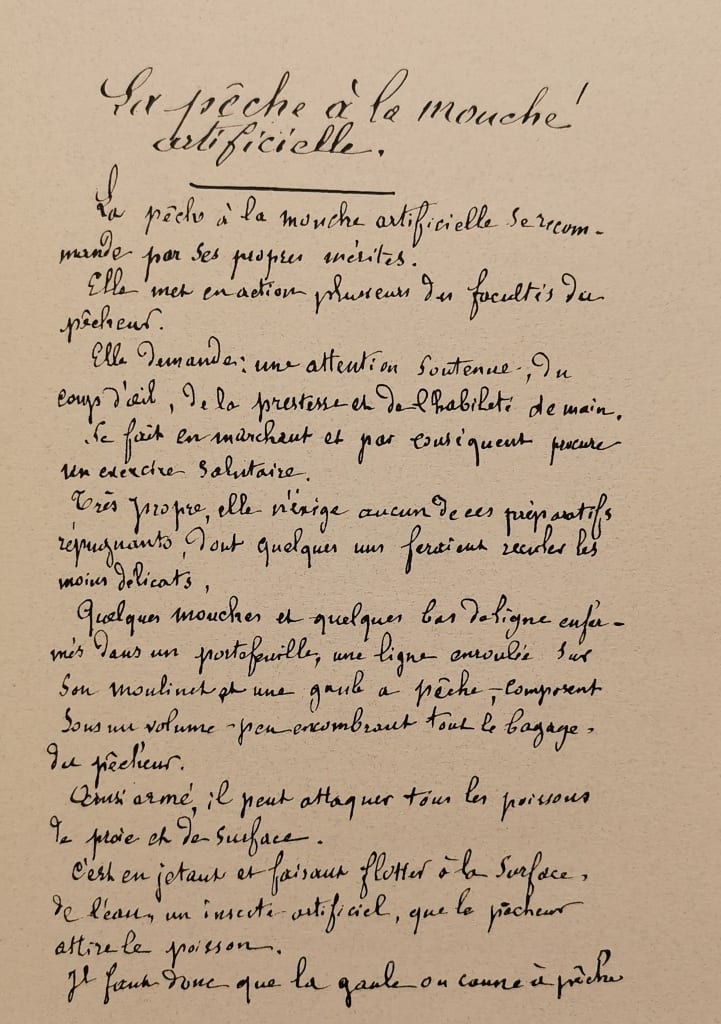 La pêche à la mouche
artificielle.
La pêche à la mouche artificielle se recom-
mande par ses propres mérites.
Elle met en action plusieurs des facultés du
pêcheur.
Elle demande : une attention soutenue, du
coup d'œil, de la prestesse et de l'habileté de main.
Se fait en marchant et par conséquent procure
un exercice salutaire.
Très propre, elle n'exige aucun de ces préparatifs
répugnants, dont quelques uns feraient reculer les
moins délicats,
Quelques mouches et quelques bas de ligne enfer-
més dans un portefeuille, une ligne enroulée sur
son moulinet et une gaule a pêche, composent
sous un volume peu encombrant tout le bagage
du pêcheur.
Ainsi armé, il peut attaquer tous les poissons
de proie et de surface.
C'est en jetant et faisant flotter à la surface,
de l'eau, un insecte artificiel, que le pêcheur
attire le poisson.
Il faut donc que la gaule ou canne à pêche